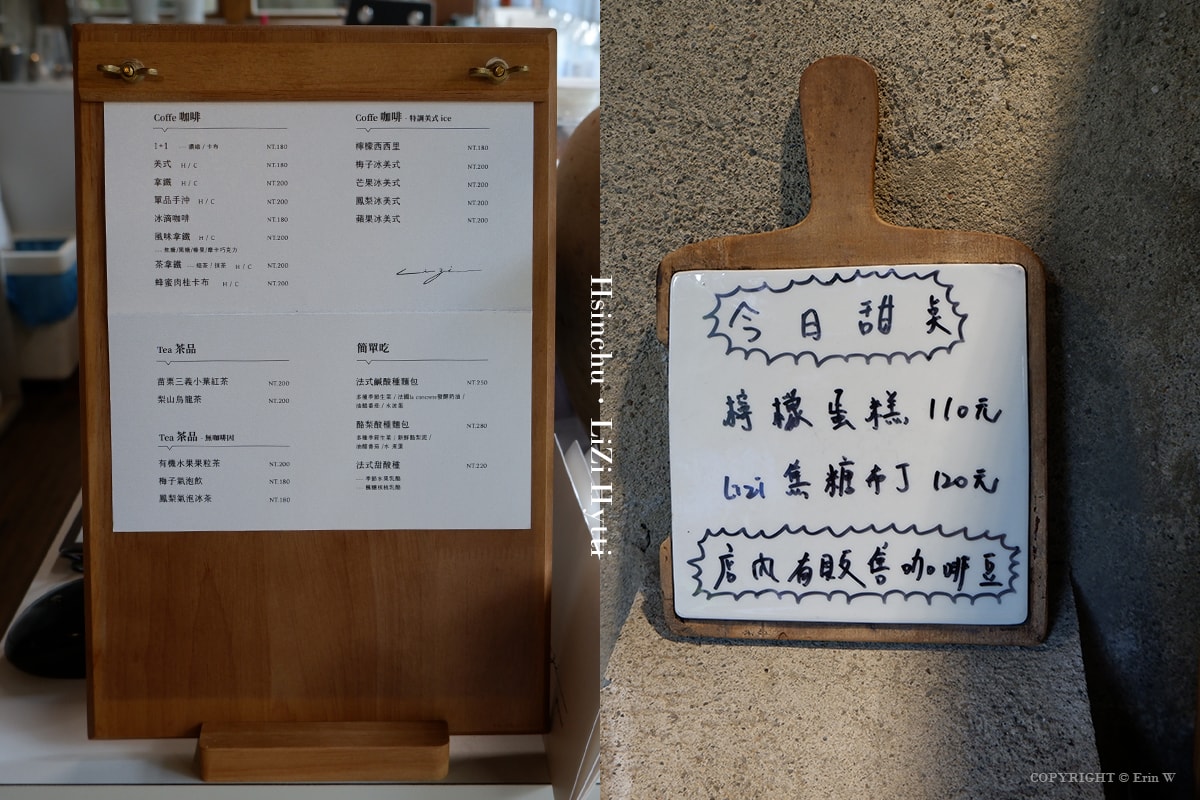 Coffe 咖啡
1+1 — 濃縮 / 卡布 NT.180
美式 H / C NT.180
拿鐵 H / C NT.200
單品手沖 H / C NT.200
冰滴咖啡 NT.180
風味拿鐵 H / C NT.200
— 焦糖/黑糖/榛果/摩卡巧克力
茶拿鐵 — 紅茶 / 抹茶 H / C NT.200
蜂蜜肉桂卡布 H / C NT.200
Coffe 咖啡 - 特調美式 ice
檸檬西西里 NT.180
梅子冰美式 NT.200
芒果冰美式 NT.200
鳳梨冰美式 NT.200
蘋果冰美式 NT.200
Lizi
Tea 茶品
苗栗三義小葉紅茶 NT.200
梨山烏龍茶 NT.200
Tea 茶品 - 無咖啡因
有機水果果粒茶 NT.200
梅子氣泡飲 NT.180
鳳梨氣泡冰茶 NT.180
簡單吃
法式鹹酸種麵包 NT.250
多種季節生菜 / 法國la concrete發酵奶油 /
油醋番茄 / 水波蛋
酪梨酸種麵包 NT.280
多種季節生菜 / 新鮮酪梨泥 /
油醋番茄 / 水波蛋
法式甜酸種 NT.220
— 季節水果乳酪
— 楓糖核桃乳酪
Hsinchu · LiZi Hytti
今日甜點
檸檬蛋糕 110元
Lizi 焦糖布丁 120元
店內有販售咖啡豆
COPYRIGHT © Erin W